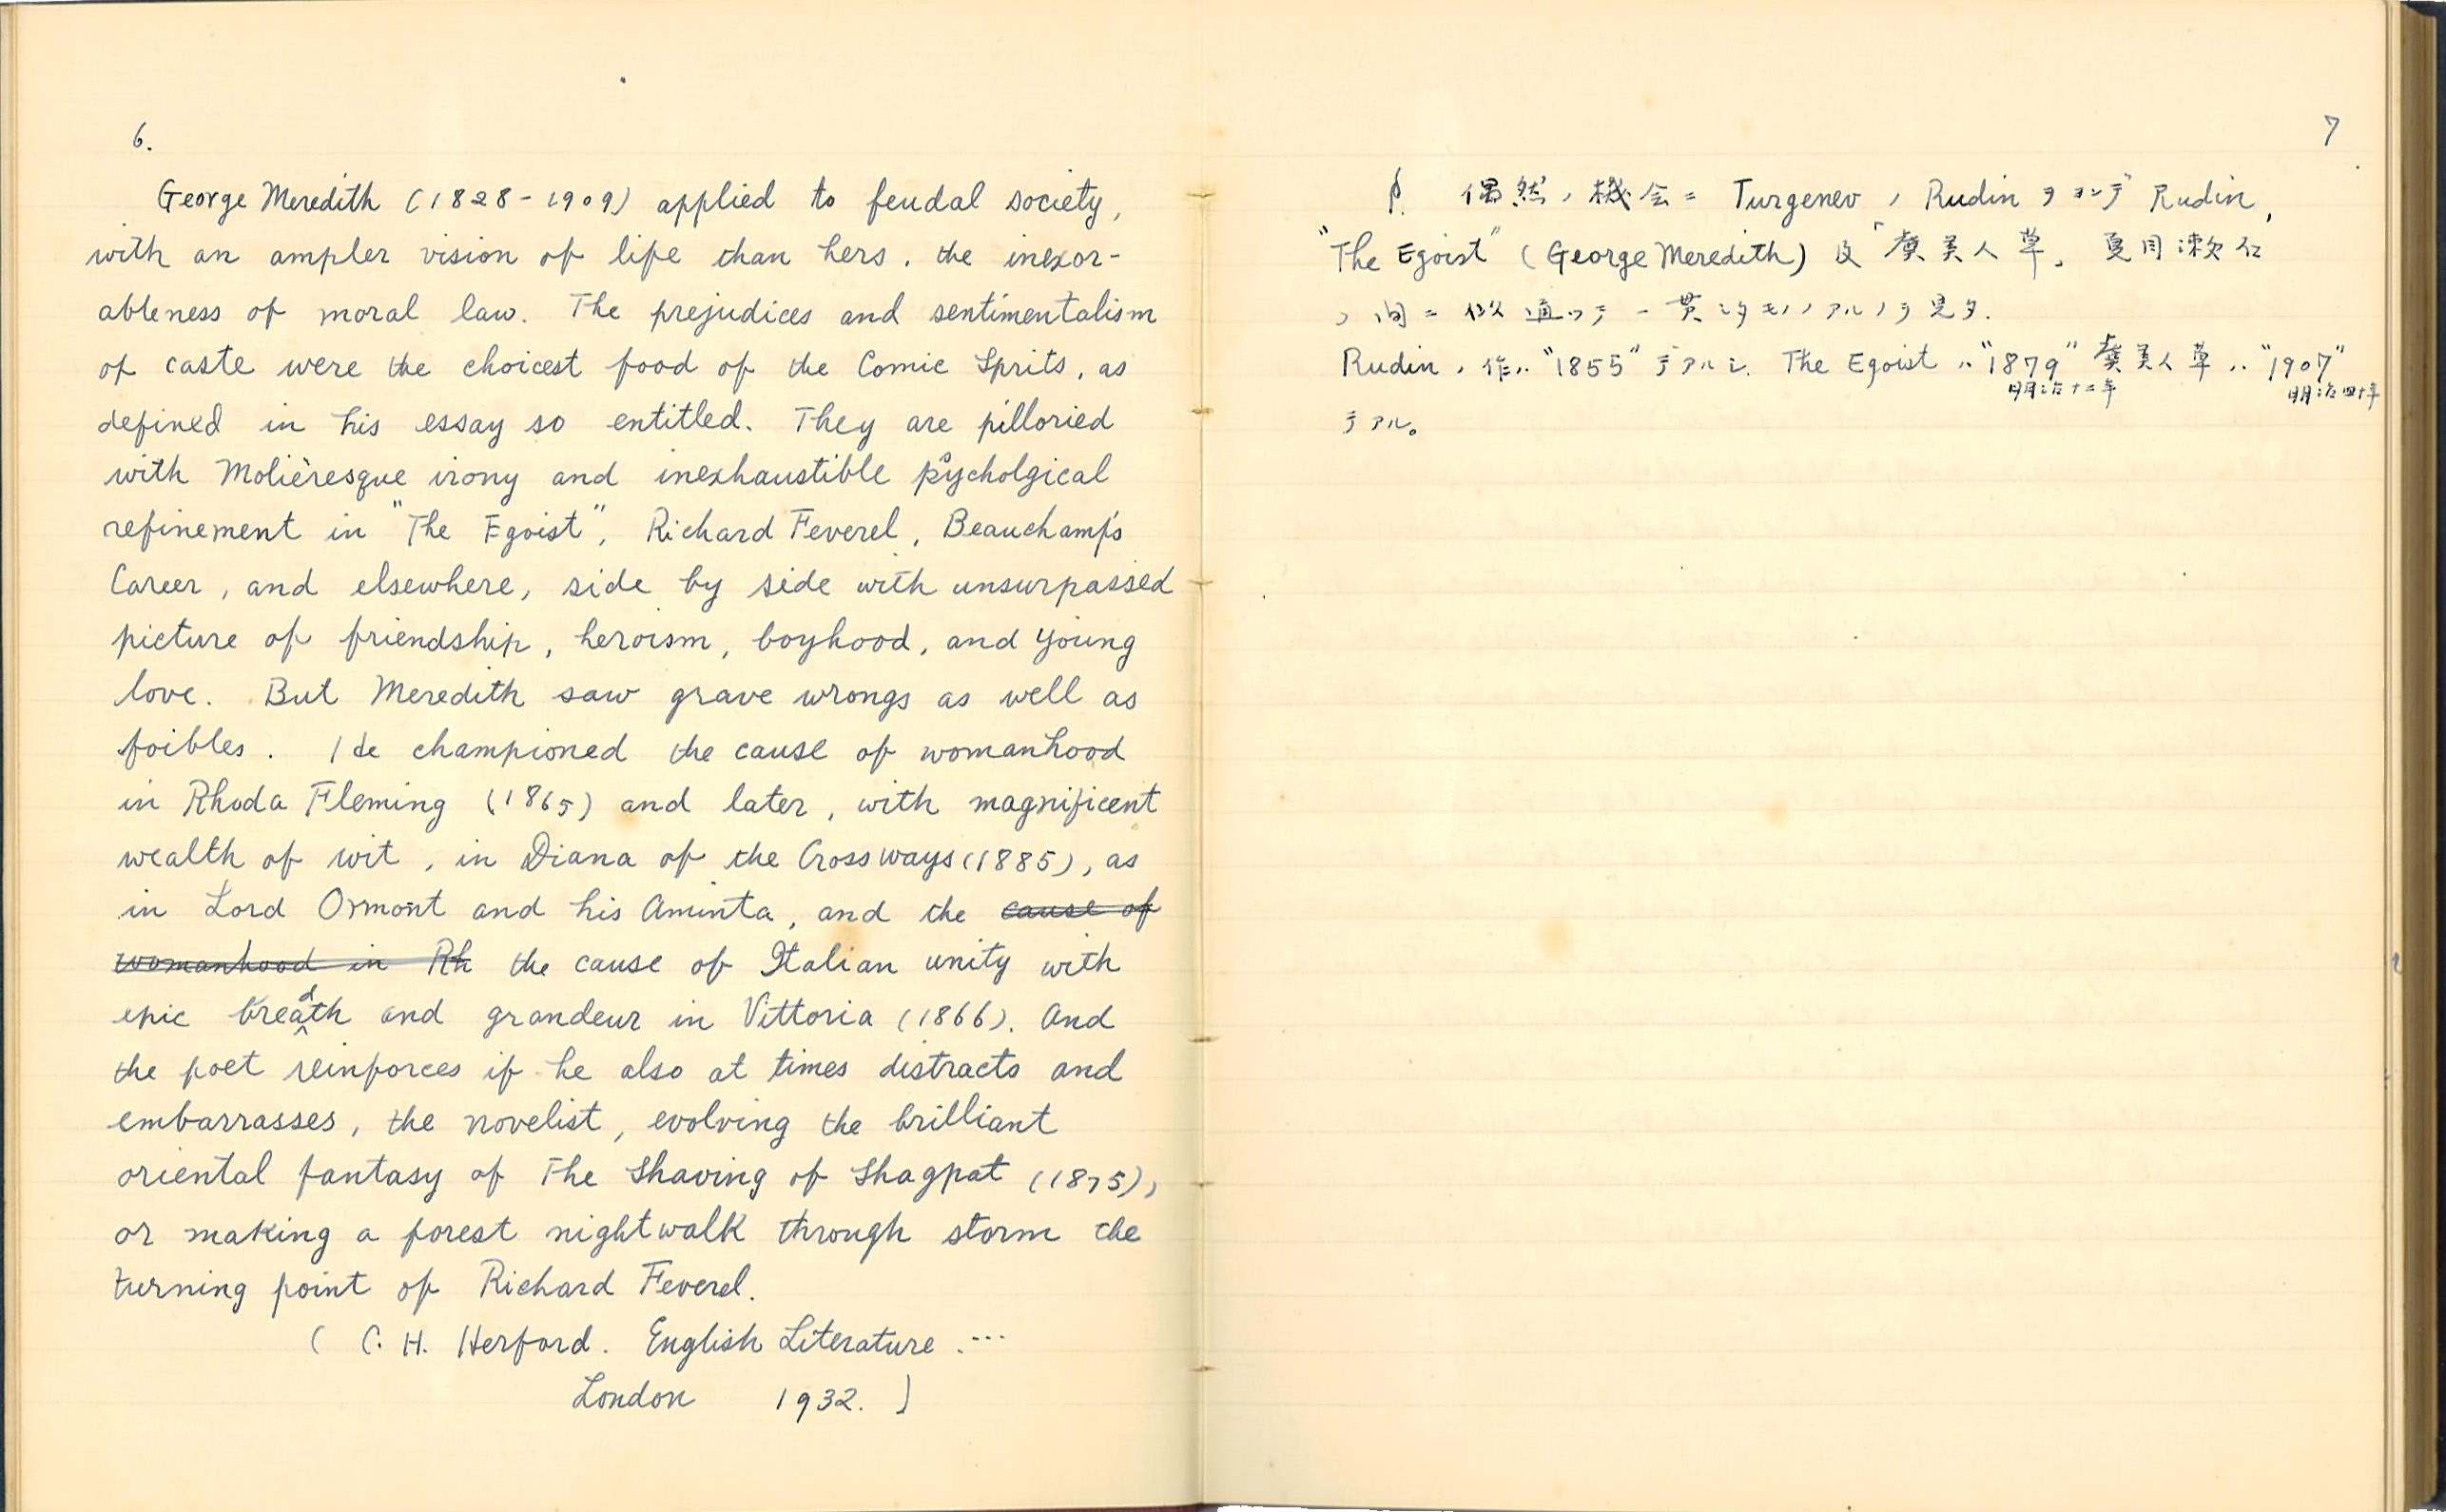 6.
George Meredith (1828-1909) applied to feudal society,
with an ampler vision of life than hers, the inexor-
ableness of moral law. The prejudices and sentimentalism
of caste were the choicest food of the Comic Sprits, as
defined in his essay so entitled. They are pilloried
with Molièresque irony and inexhaustible psycholgical
refinement in "The Egoist", Richard Feverel, Beauchamp's
Career, and elsewhere, side by side with unsurpassed
picture of friendship, heroism, boyhood, and young
love. But Meredith saw grave wrongs as well as
foibles. He championed the cause of womanhood
in Rhoda Fleming (1865) and later, with magnificent
wealth of wit, in Diana of the Crossways (1885), as
in Lord Ormont and his Aminta, and the cause of
womanhood in Rh the cause of Italian unity with
epic breadth and grandeur in Vittoria (1866). And
the poet reinforces if he also at times distracts and
embarrasses, the novelist, evolving the brilliant
oriental fantasy of The Shaving of Shagpat (1875),
or making a forest nightwalk through storm the
turning point of Richard Feverel.
( C. H. Herford. English Literature. ...
London 1932. )
7
偶然ノ機会ニ Turgenev ノ Rudin ヲヨンデ Rudin,
"The Egoist" (George Meredith) 及「虞美人草」夏目漱石
ノ間ニ似通ツテ一貫シタモノノアルノヲ見タ.
Rudin ノ作ハ "1855" デアルシ. The Egoist ハ "1879" 虞美人草ハ "1907"
明治十二年 明治四十年
デアル。